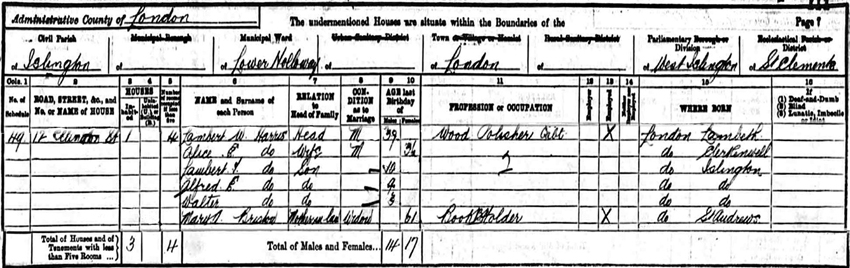 Administrative County of London
The undermentioned Houses are situate within the Boundaries of the
Page 7
Civil Parish
Municipal Borough
Municipal Ward
Urban Sanitary District
Town or Village or Hamlet
Rural Sanitary District
Parliamentary Borough or Division
Ecclesiastical Parish or District
of Islington
of
of Lower Holloway
of
of London
of
of West Islington
of St Clements
Cols. 1 2 3 4 5 6 7 8 9 10 11 12 13 14 15 16
No. of Schedule
ROAD, STREET, &c., and No. or NAME of HOUSE
HOUSES
Inhabited
NAME and Surname of each Person
RELATION to Head of Family
CONDITION as to Marriage
AGE last Birthday of
Males
Females
PROFESSION or OCCUPATION
Employer
Employed
WHERE BORN
If
(1) Deaf-and-Dumb
(2) Blind
(3) Lunatic, Imbecile or Idiot
49 St 1 4 Lambert W. Harris Head M 39 Wood Polisher X London Lambeth
Alice E do Wife M do Clerkenwell
Lambert do Son 10 do Islington
Alfred E do do 9 do do
Walter do do 3 do do
Mary Briskow Mother in Law Widow 61 Book Folder X do St Andrews
Total of Houses and of Tenements with less than Five Rooms ... 3 4
Total of Males and Females... 14 17